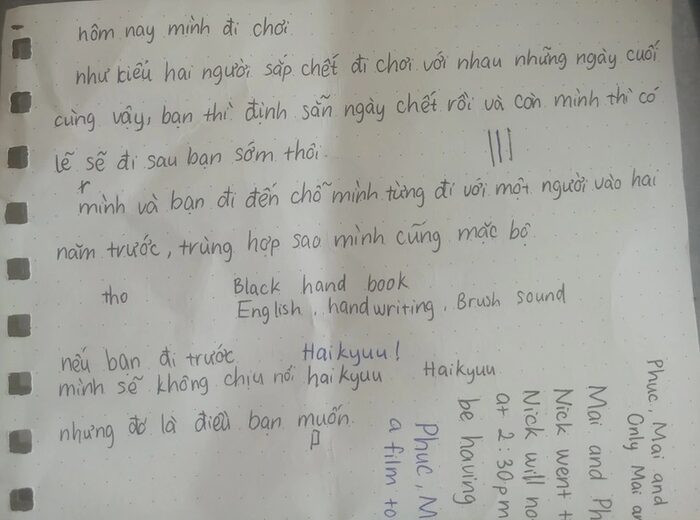 hôm nay mình đi chơi
như kiểu hai người sắp chết đi chơi với nhau những ngày cuối
cùng vậy, bạn thì định sẵn ngày chết rồi và còn mình thì có
lẽ sẽ đi sau bạn sớm thôi.
mình và bạn đi đến chỗ mình từng đi với một người vào hai
năm trước, trùng hợp sao mình cũng mặc bộ
tho
Black hand book
English, handwriting, Brush sound
nếu bạn đi trước
Haikyuu!
mình sẽ không chịu nổi haikyuu
Haikyuu
nhưng đó là điều bạn muốn.
Phuc, Mai and
Only Mai an
Mai and Ph
Nick went t
Nick will no
at 2:30pm
be having
Phuc, M
a film to